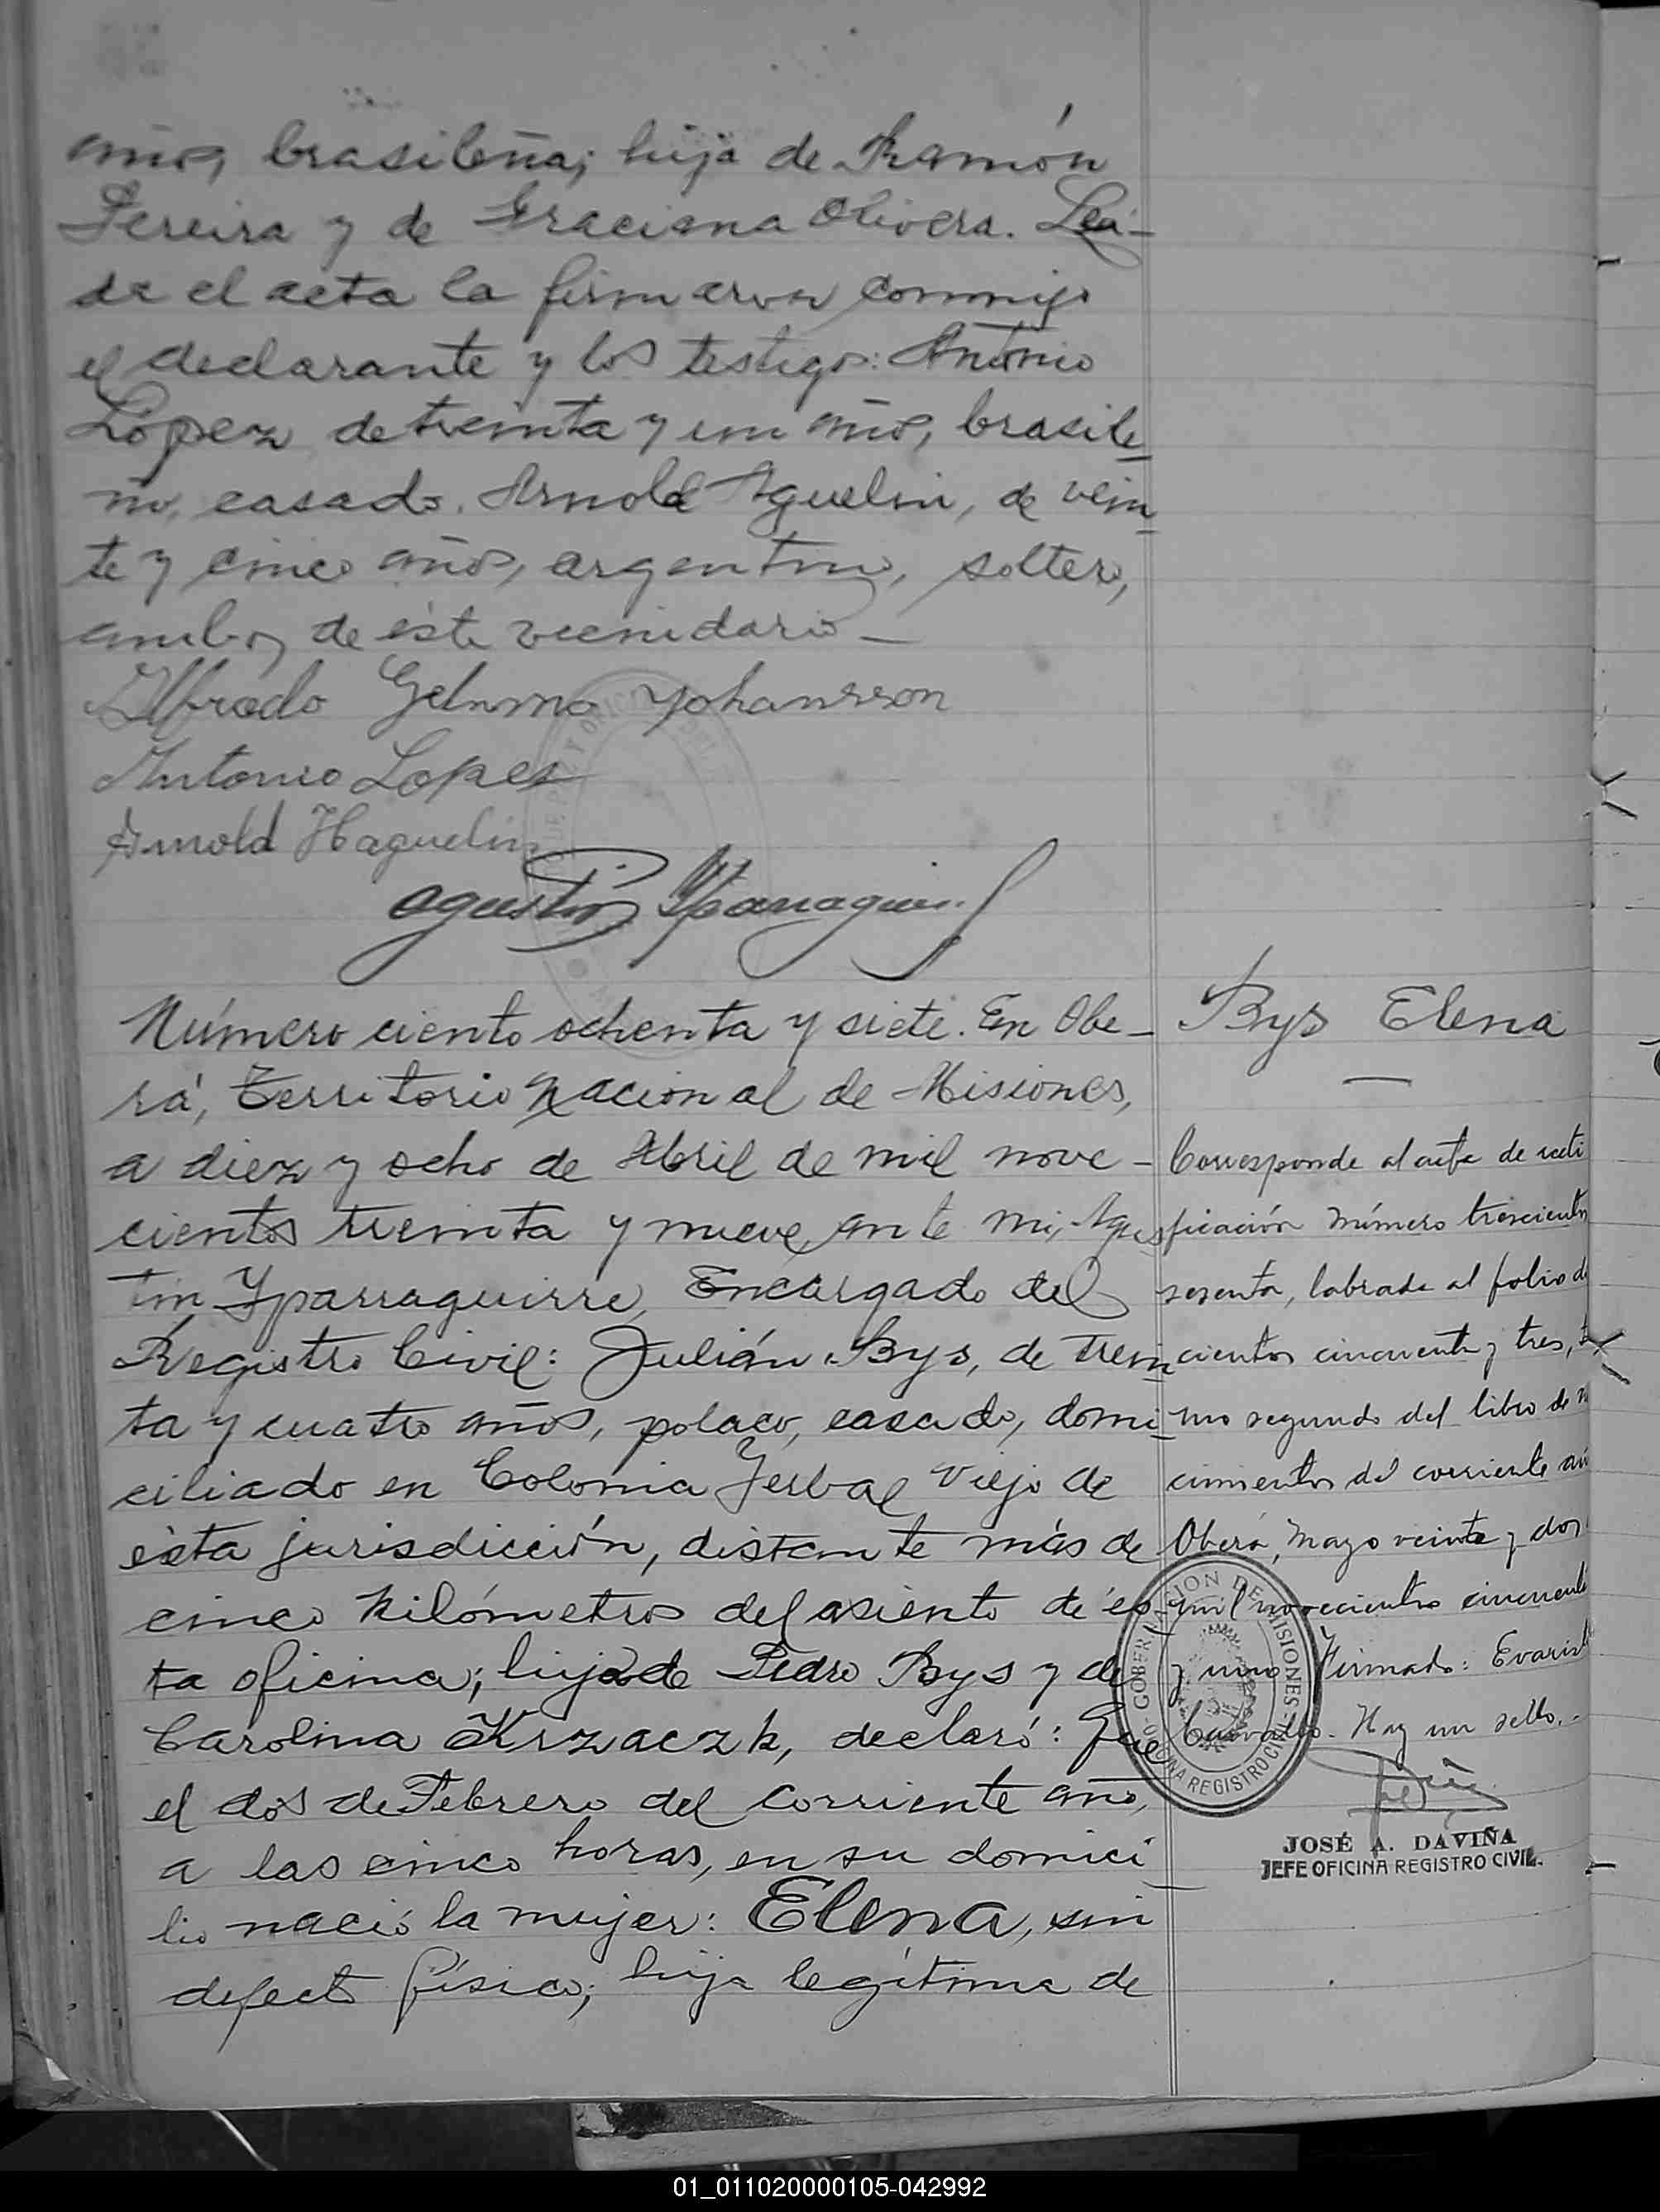 años, brasileña; hija de Ramón
Pereira y de Graciana Olivera. Leí-
da el acta la firmaron conmigo
el declarante y los testigos: Antonio
López de treinta y un años, brasile
ño, casado. Arnold Aguelin, de vein
te y cinco años, argentino, soltero,
ambos de éste vecindario —
Alfrédo Yohansson
Antonio Lopes
Arnold Haguelin
Agustín Yparraguirre
Número ciento ochenta y siete. En Obe-
rá, Territorio Nacional de Misiones,
a diez y ocho de Abril de mil nove-
cientos treinta y nueve, ante mi, Agus
tín Yparraguirre, Encargado del
Registro Civil: Julián Bys, de trein
ta y cuatro años, polaco, casado, domi
ciliado en Colonia Yerbal Viejo de
ésta jurisdicción, distante más de
cinco kilómetros del asiento de és
ta oficina; hijo de Pedro Bys y de
Carolina Krzaczk, declaró: Que
el dos de Febrero del corriente año,
a las cinco horas, en su domici
lio nació la mujer: Elena, sin
defecto físico; hija legítima de
Bys Elena
—
Corresponde al acta de recti
ficación número trescientos
sesenta, labrada al folio
cientos cincuenta y tres,
mo segundo del libro de
cimientos del corriente
Oberá, Mayo veinte y dos
mil novecientos cincuenta
y uno Firmado: Evaristo
Hay un sello.-
GOBERNACION DE MISIONES
OFICINA REGISTRO CIVIL
JOSÉ A. DAVIÑA
JEFE OFICINA REGISTRO CIVIL.
01_011020000105-042992